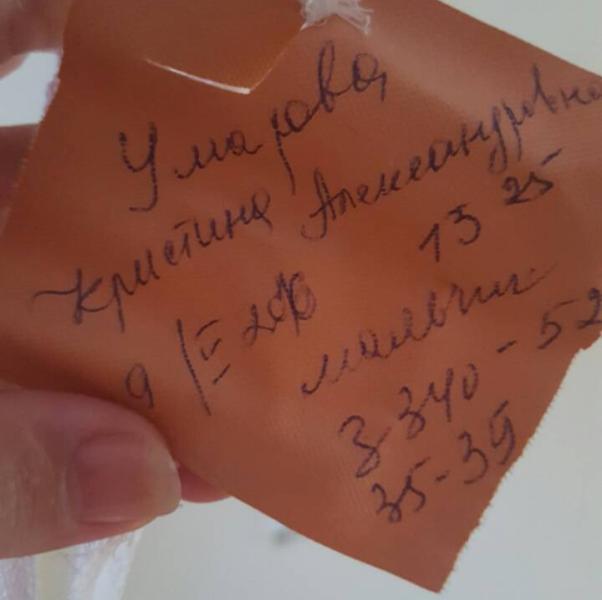 Умарова
Кристина Александровна
9/II 13 25
мальчик
3340-52
35-35